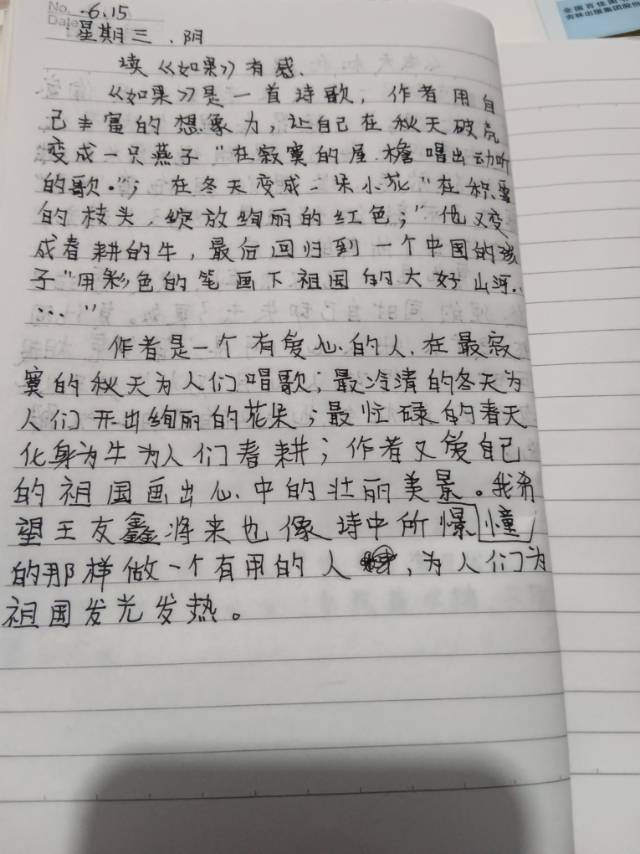 No.
Date
6.15
星期三.阴
读《如果》有感.
《如果》是一首诗歌,作者用自
己丰富的想象力,让自己在秋天破壳
变成一只燕子"在寂寞的屋檐唱出动听
的歌。";在冬天变成一朵小花"在积雪
的枝头.绽放绚丽的红色;"他又变
成春耕的牛,最后回归到一个中国的孩
子"用彩色的笔画下祖国的大好山河..
...."
作者是一个有爱心的人.在最寂
寞的秋天为人们唱歌;最冷清的冬天为
人们开出绚丽的花朵;最忙碌的春天
化身为牛为人们春耕;作者又爱自己
的祖国画出心中的壮丽美景。我希
望王友鑫将来也像诗中所憬憧
的那样做一个有用的人,为人们为
祖国发光发热。
全国百佳图书
吉林出版集团股份